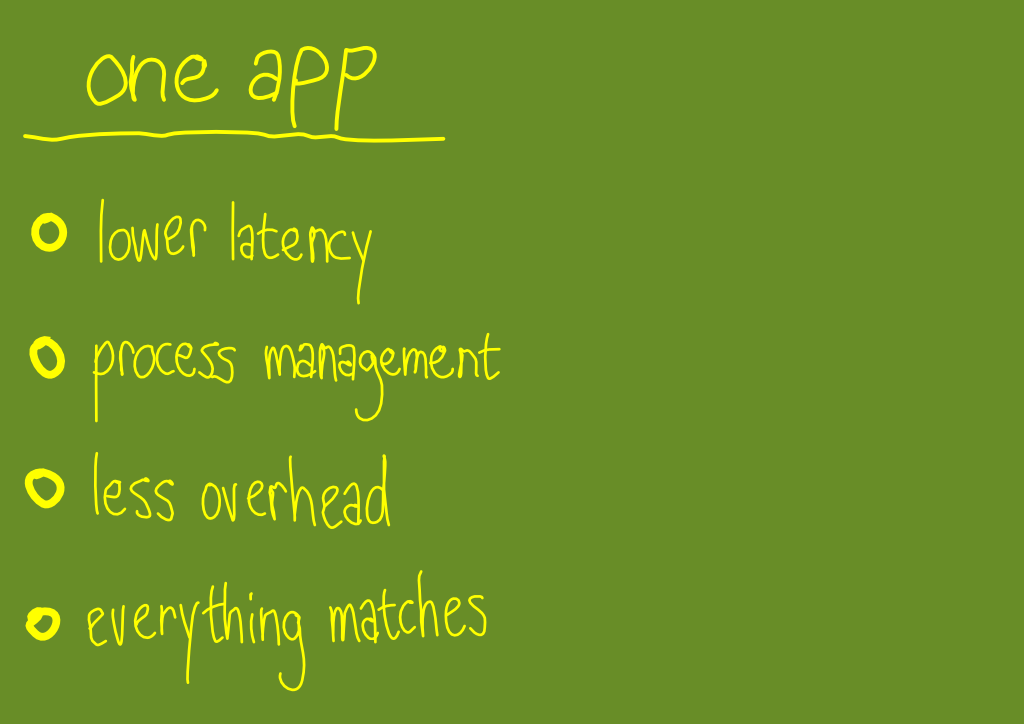 one app
lower latency
process management
less overhead
everything matches